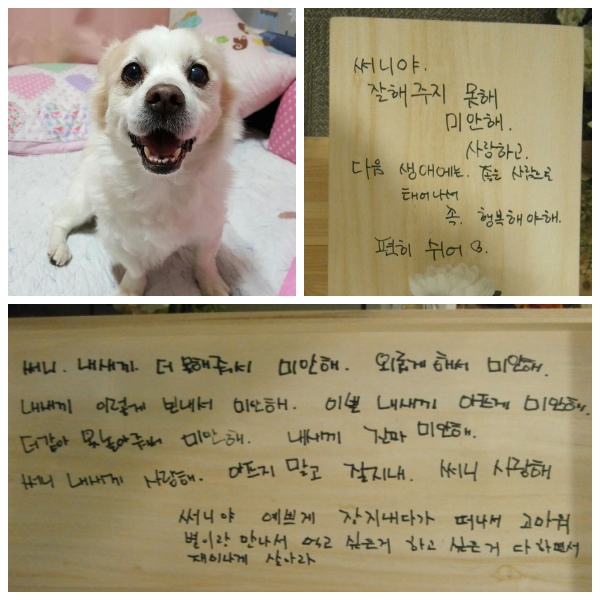 써니야.
잘해주지 못해
미안해.
사랑하고.
다음 생애에는. 좋은 사람으로
태어나서
꼭. 행복해야해.
편히 쉬어
써니. 내새끼. 더 못해줘서 미안해. 외롭게 해서 미안해.
내새끼 이렇게 보내서 미안해. 이쁜 내새끼 아프게 미안해.
더같이 못놀아주어 미안해. 내새끼 진짜 미안해.
써니 내새끼 사랑해. 아프지 말고 잘지내. 써니 사랑해
써니야 예쁘게 잘지내다가 떠나서 고마워
별이랑 만나서 먹고 싶은거 하고 싶은거 다하면서
재미나게 살아라